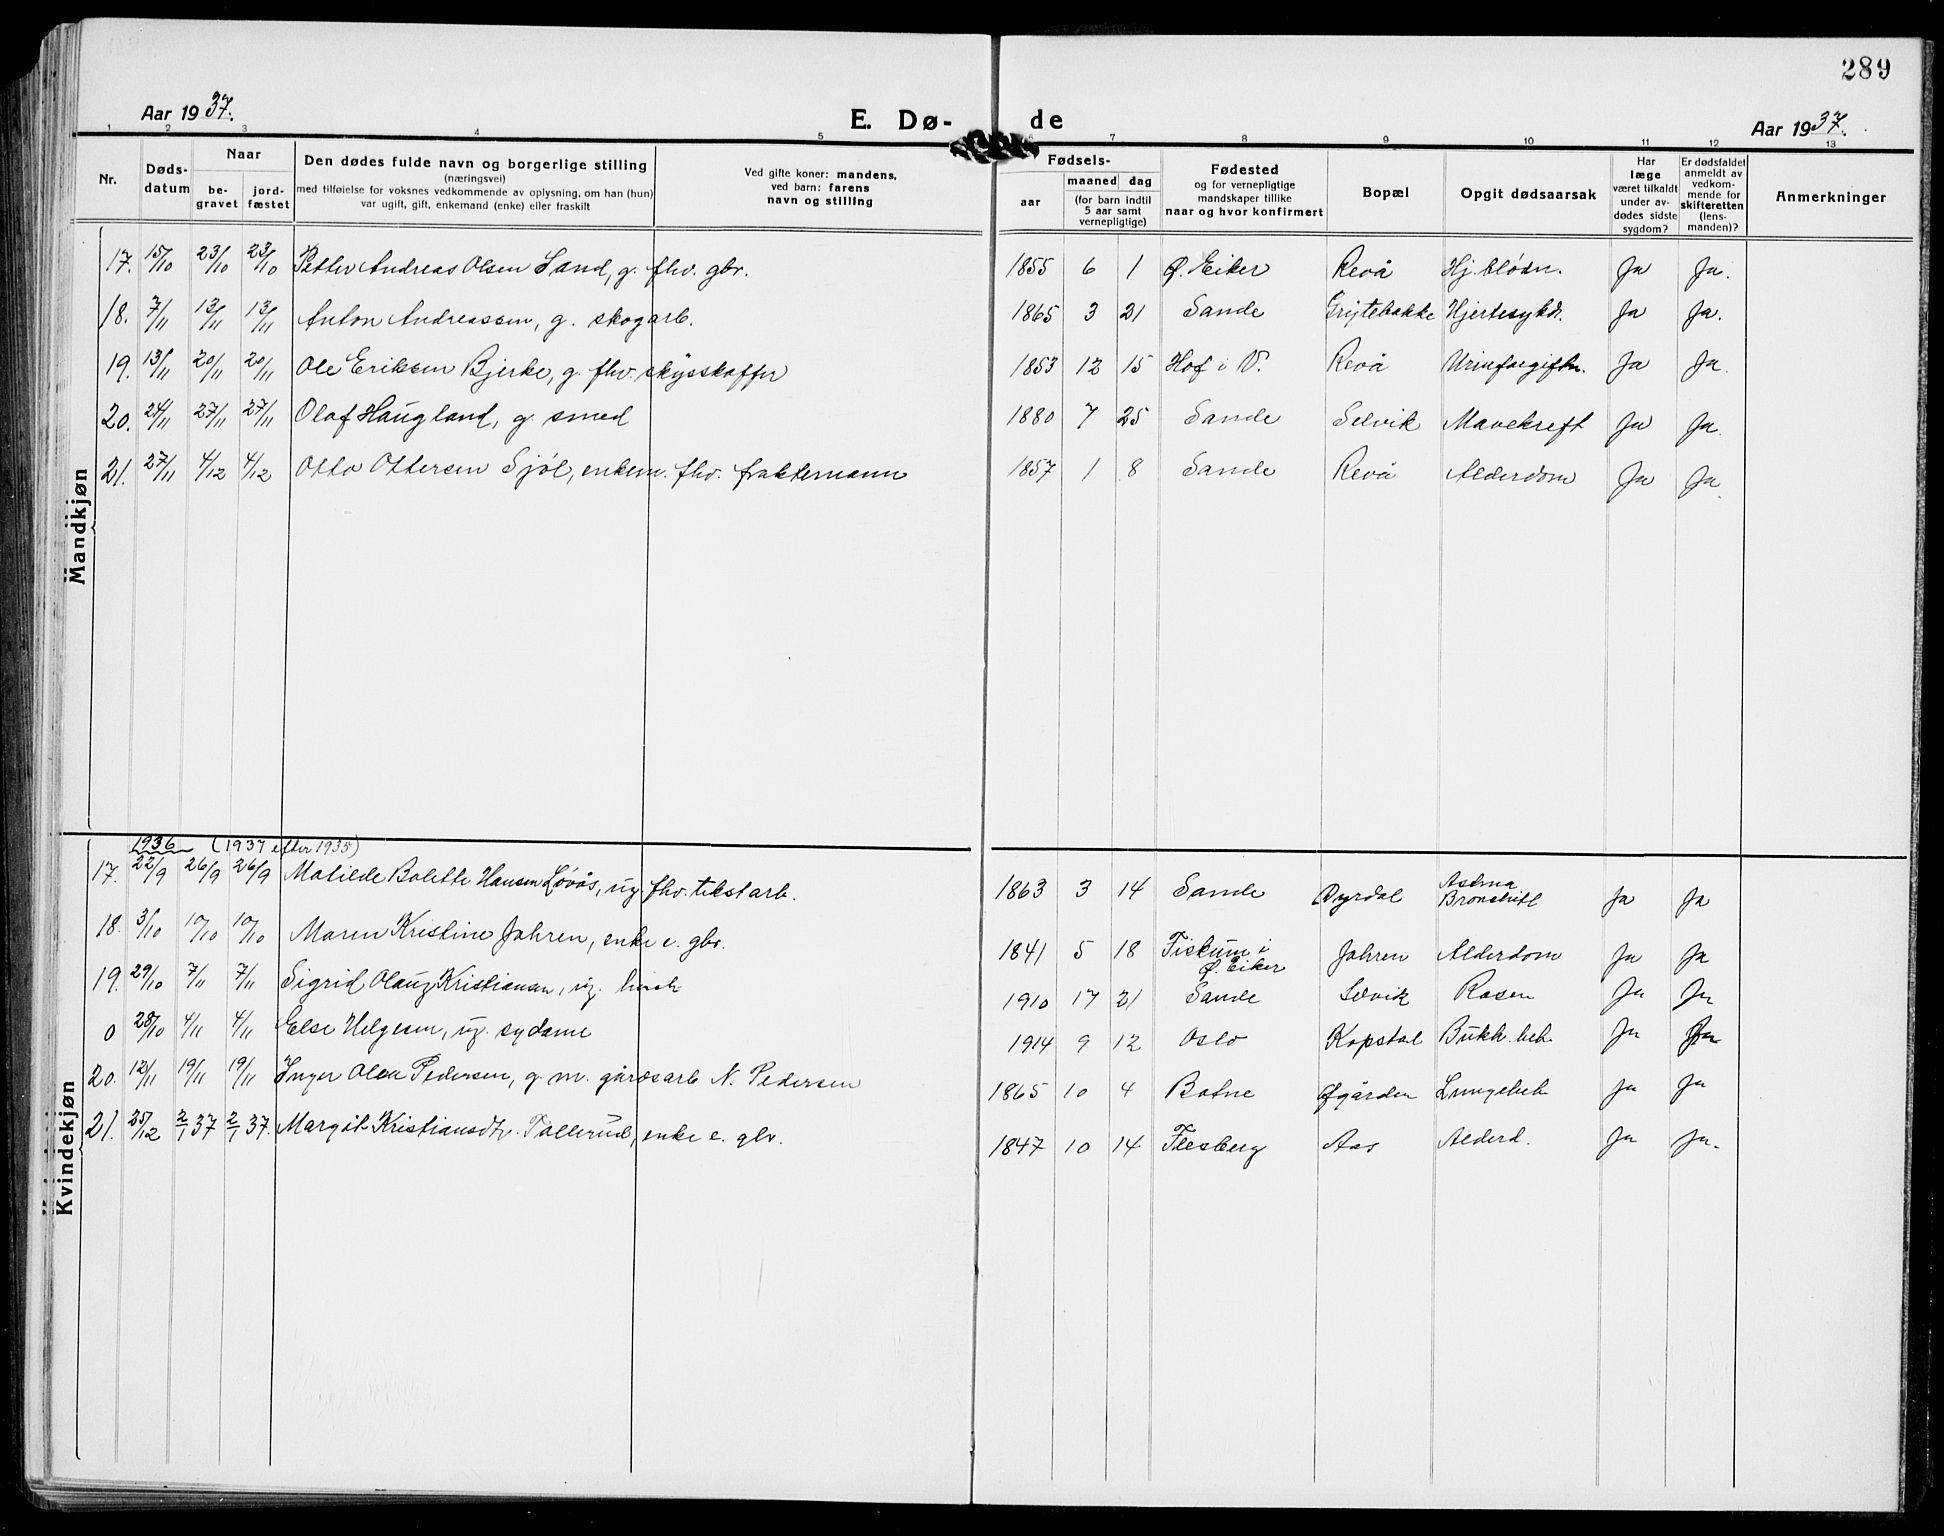 289
Aar 1937.
E. Dø- de
Aar 1937.
1 2 3 4 5 6 7 8 9 10 11 12 13
Nr.
Døds-datum
Naar
be-gravet
jord-fæstet
Den dødes fulde navn og borgerlige stilling
(næringsvei)
med tilføielse for voksnes vedkommende av oplysning, om han (hun)
var ugift, gift, enkemand (enke) eller fraskilt
Ved gifte koner: mandens,
ved barn: farens
navn og stilling
Fødsels-
aar
maaned dag
(for barn indtil
5 aar samt
vernepligtige)
Fødested
og for vernepligtige
mandskaper tillike
naar og hvor konfirmert
Bopæl
Opgit dødsaarsak
Har
læge
været tilkaldt
under av-
dødes sidste
sygdom?
Er dødsfaldet
anmeldt av
vedkom-
mende for
skifteretten
(lens-
manden)?
Anmerkninger
Mandkjøn
17. 15/10 23/10 23/10 Petter Andreas Olsen Sand, g. fhv. gbr. 1855 6 1 Ø. Eiker Revå Hj.blødn. Ja Ja.
18. 7/11 13/11 13/11 Anton Andreassen, g. skogarb. 1865 3 21 Sande Grytebakke Hjertesykd. Ja Ja.
19. 13/11 20/11 20/11 Ole Eriksen Bjerke, g. fhv. skysskaffer 1853 12 15 Hof i V. Revå Urinforgiftn. Ja Ja.
20. 24/11 27/11 27/11 Olaf Haugland, g. smed 1880 7 25 Sande Selvik Mavekreft Ja Ja.
21. 27/11 4/12 4/12 Otto Ottersen Sjøl, enkem. fhv. fraktemann 1857 1 8 Sande Revå Alderdom Ja Ja.
Kvindekjøn
1936 (1937 efter 1935)
17. 22/9 26/9 26/9 Matilde Bolette Hansen Løvås, ug. fhv. tekstarb. 1863 3 14 Sande Dyrdal Astma Bronchitt Ja Ja
18. 3/10 10/10 10/10 Maren Kristine Jahren, enke e. gbr. 1841 5 18 Fiskum i Ø. Eiker Jahren Alderdom Ja Ja
19. 29/10 7/11 7/11 Sigrid Olaug Kristiansen, ug. 1910 17 21 Sande Selvik Rosen Ja Ja
0 28/10 4/11 4/11 Else Helgesen, ug. sydame 1914 9 12 Oslo Kopstad Bukh.bet. Ja Ja
20. 12/11 19/11 19/11 Inger Olea Pedersen, g. m. gårdsarb N. Pedersen 1865 10 4 Botne Øgården Lungebet. Ja Ja
21. 25/12 2/1 37 2/1 37. Margit Kristiansdtr. Tollerud, enke e. gbr. 1847 10 14 Flesberg Aas Alderd. Ja Ja.